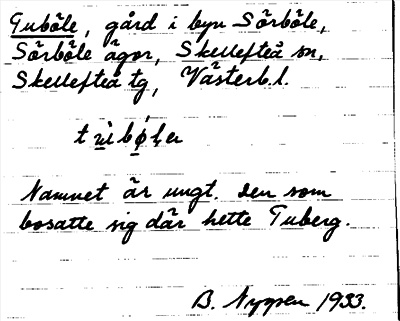 Tuböle, gård i byn Sörböle,
Sörböle ägor, Skellefteå sn,
Skellefteå tg, Västerb.l.
Namnet är ungt. Den som
bosatte sig där hette Tuberg.
B. Nyssen 1933.